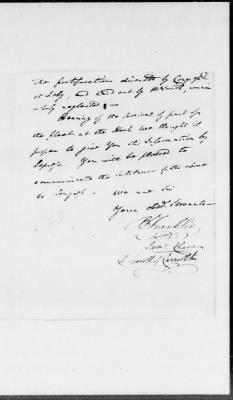 the fortifications directed by Congress
at and laid out by Mr Smith, remain
wholly neglected —
Hearing of the arrival of part of
the fleet at the Hook we thought it
proper to give You this Information by
Express. You will be pleased to
communicate the substance of the above
to Congress. We are Sir
Your Obdt Servants
B Franklin
Saml Chase
Carroll of Carrollton